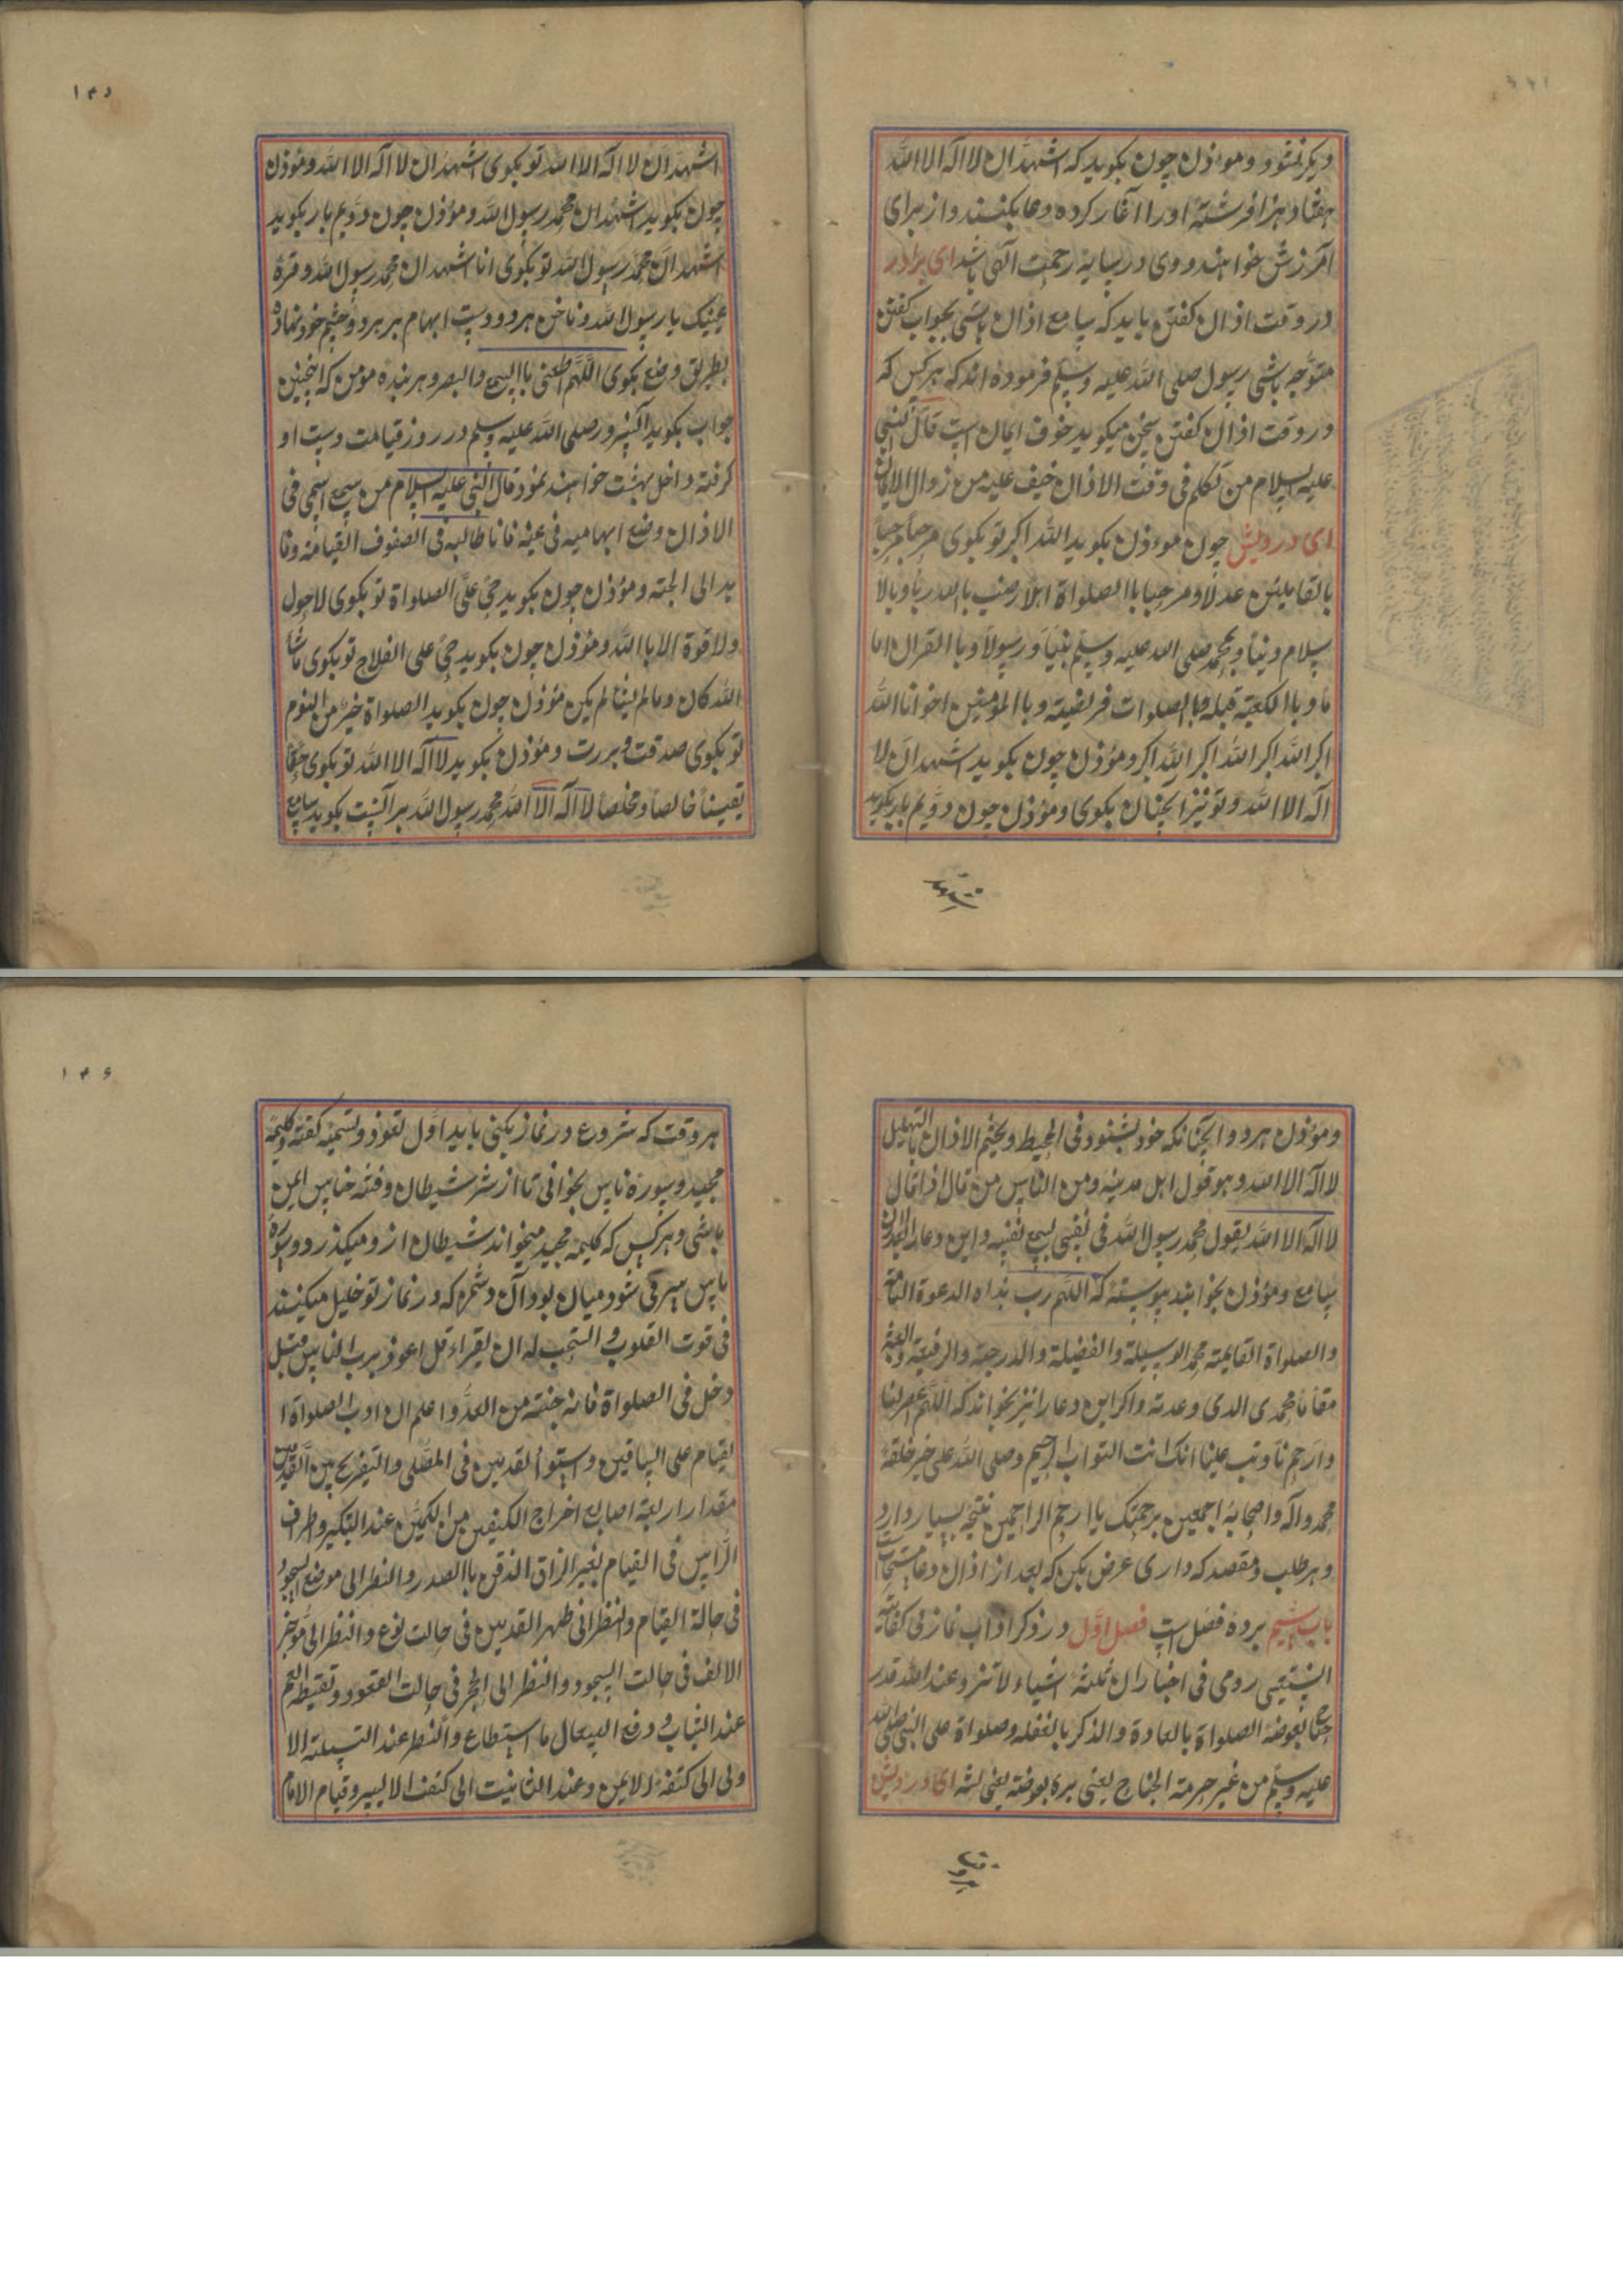 دیکر نمشود و موءذن چون بکوید که اشهد ان لا اله الا الله
هفتاد هزار فرشته اورا آغاز کرده دعا بکنند و از برای
آمرزش خواهند و وی در سایه رحمت آلهی باشد ای برادر
در وقت اذان کفتن باید که سامع اذان باشی بجواب کفتن
متوجه باشی رسول صلی الله علیه وسلم فرموده اند که هر کس که
در وقت اذان کفتن سخن میکوید خوف ایمان است قال النبی
علیه السلام من تکلم فی وقت الاذان خیف علیه من زوال الایمان
ای درویش چون موءذن بکوید الله اکبر تو بکوی مرحبا مرحبا
بالقایلین عدلا و مرحبا با الصلواة اهلا رضیت بالله ربا و بالا
سلام دینا و بمحمد صلی الله علیه وسلم نبیا و رسولا و با القران اما
ما و با الکعبة قبله و با الصلوات فریضیته و با المومنین اخوانا الله
اکبر الله اکبر الله اکبر الله اکبر و مؤذن چون بکوید اشهد ان لا
اله الا الله و تو نیز آنچنان بکوی و مؤذن چون دویم بار بکوید
۱۴۵
اشهد ان لا اله الا الله تو بکوی اشهد ان لا اله الا الله و مؤذن
چون بکوید اشهد ان محمد رسول الله و مؤذن چون دویم بار بکوید
اشهد ان محمد رسول الله تو بکوی انا اشهد ان محمد رسول الله و قرة
عینیک یا رسول الله و ناخن هر دو دست ابهام بر هر دو چشم خود نهاده
بطریق وضع بکوی اللهم اطعنی با السمع والبصر و هر بنده مومن که اینچنین
جواب بکوید آنسرور صلی الله علیه وسلم در روز قیامت دست او
کرفته داخل بهشت خواهند نمود قال النبی علیه السلام من سمع اسمی فی
الاذان وضع ابهامیه فی عینه فانا طالبه فی الصفوف القیامته وقا
یده الی الجنه و مؤذن چون بکوید حی علی الصلواة تو بکوی لاحول
ولا قوة الا با الله و مؤذن چون بکوید حی علی الفلاح تو بکوی ماشا
الله کان و مالم یشا لم یکن مؤذن چون بکوید الصلواة خیر من النوم
تو بکوی صدقت و بررت و مؤذن بکوید لا اله الا الله تو بکوی حقا
یقینا خالصا و مخلصا لا اله الا الله محمد رسول الله بر آنست بکوید سامع
و مؤذن هر دو آنچنانکه خود بشنود فی المحیط و یختم الاذان با التهلیل
لا اله الا الله و هو قول اهل مدینه و من الناس من قال اذا قال
لا اله الا الله یقول محمد رسول الله فی نفسی یسمع نفسه و این دعا را بعد از اذان
سامع و مؤذن بخوانند پیوسته که اللهم رب هذه الدعوة التامة
والصلواة القایمته محمد الوسیلة والفضیلة والدرجة والرفیعة وابعثه
مقاما محمدی الذی وعدته و اکر این دعا را نیز بخواند که اللهم اغفر لنا
وارحم نا وتب علینا انک انت التواب الرحیم وصلی الله علی خیر خلقه
محمد و آله و اصحابه اجمعین برحمتک یا ارحم الراحمین نتیجه بسیار دارد
و هر طلب و مقصد که داری عرض بکن که بعد از اذان دعا مستجاب
باب ششم بر ده فصل است فصل اول در ذکر اداب نماز فی کفایة
الشعبی روی فی اخبار ان ثلثة اشیاء لا تزو عند الله قدر
جناح بعوضة الصلواة بالعادة والذکر بالغفله وصلواة علی النبی صلی الله
علیه وسلم من غیر حرمة الجناح یعنی پره بعوضه یعنی پشه ای درویش
۱۴۶
هر وقت که شروع در نماز بکنی باید اول تعوذ و تسمیه کفته و کلیمه
مجید و سوره ناس بخوانی تا از شر شیطان و فتنه خناس ایمن
باشی و هر کس که کلیمه مجید میخواند شیطان ازو میکذرد و سوره
ناس سپر می شود میان بود آن دشمن که در نماز تو خلیل میکنند
فی قوت القلوب و استحب له ان یقراء قل اعوذ برب الناس قبل
دخل فی الصلواة فانه جنته من العدو اعلم ان ادب الصلواة ا
لقیام علی الساقین و ستوا لقدمین فی المصلی والتفریج بین القدمین
مقدار اربعة اصابع اخراج الکفین من الکمین عند التکبیر و اطراف
الراس فی القیام بغیر الزاق الذقن با الصدر والنظر الی موضع السجود
فی حالة القیام والنظر انی ظهر القدمین فی حالت کوع والنظر الی موخر
الالف فی حالت السجود والنظر الی الحجر فی حالت القعود و تقیط الفم
عند التباب و دفع السعال ما استطاع والنظر عند التسلیمة الا
ولی الی کتفه الایمن و عند الثانیت الی کتف الا لیسر و قیام الامام